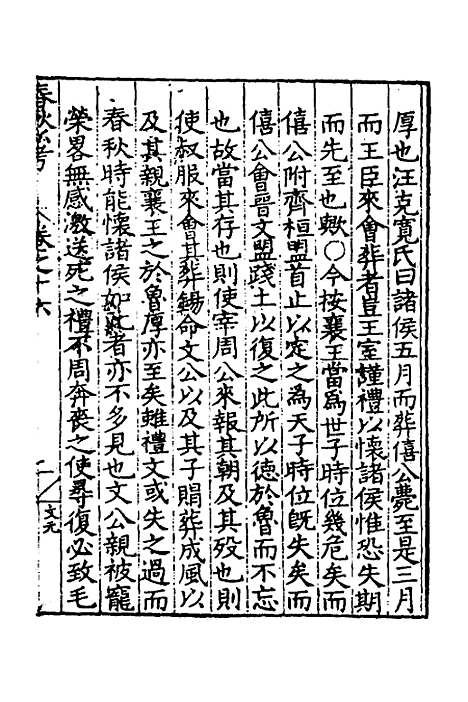 厚也汪克寬氏曰諸侯五月而葬僖公薨至是三月
而王臣來會葬者豈王室謹禮以懷諸侯惟恐失期
而先至也歟○今按襄王當爲世子時位幾危矣而
僖公附齊桓盟首止以定之為天子時位旣失矣而
僖公會晉文盟踐土以復之此所以德於魯而不忘
也故當其存也則使宰周公來報其朝及其殁也則
使叔服來會其葬錫命文公以及其子賵葬成風以
及其親襄王之於魯厚亦至矣雖禮文或失之過而
春秋時能懷諸侯如此者亦不多見也文公親被寵
榮畧無感激送死之禮不周奔喪之使尋復必致毛
春秋 考 卷之十六 文元